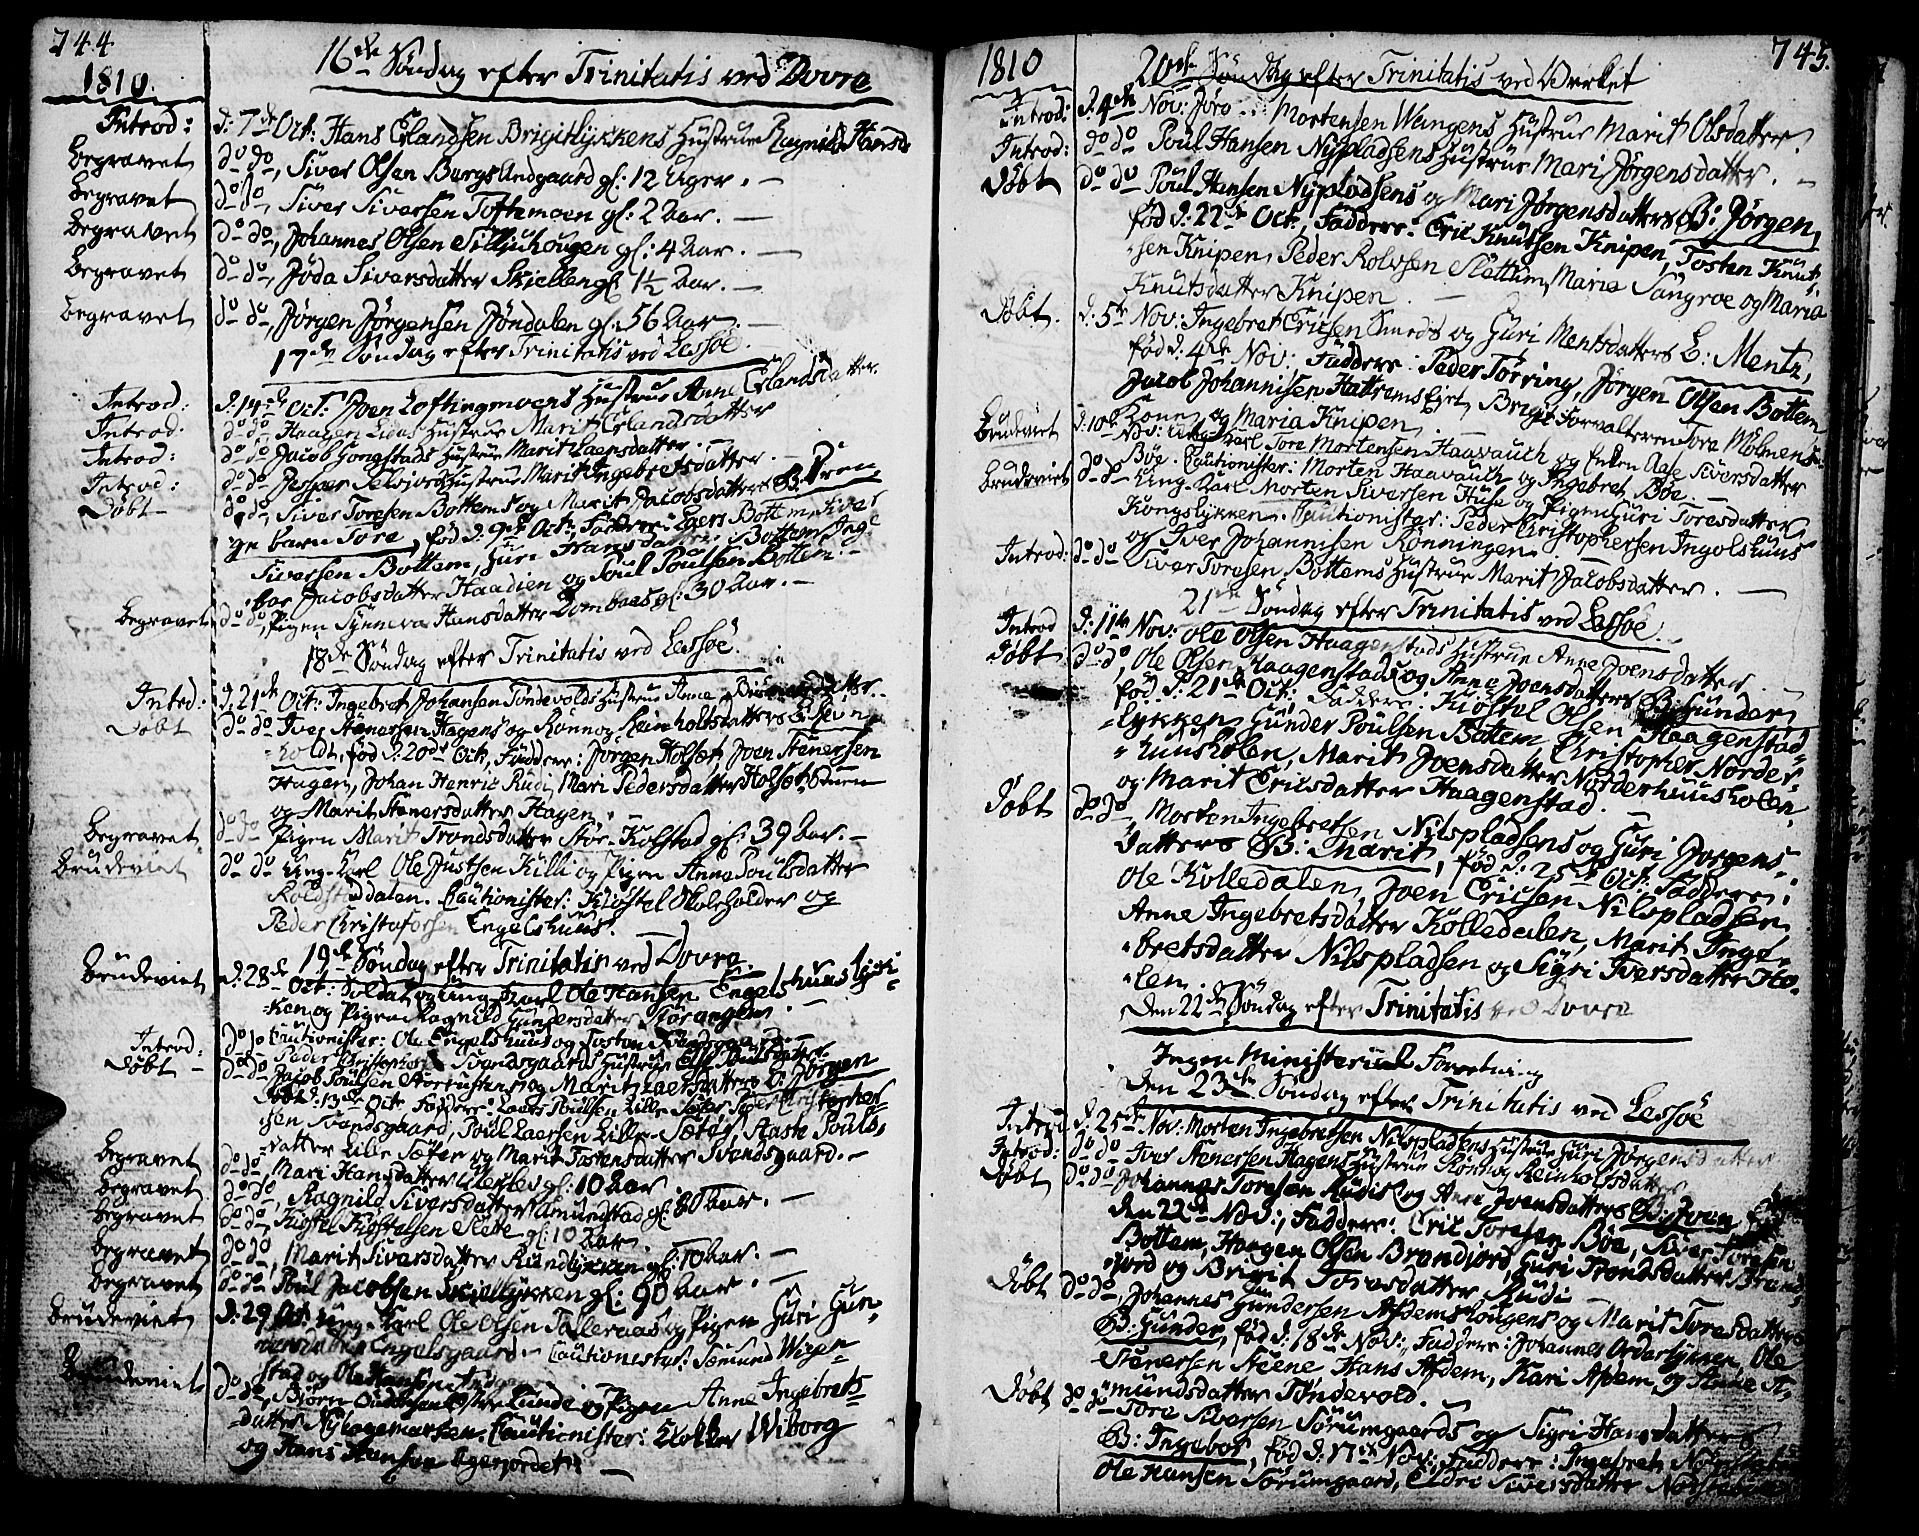 744
1810.
16de Søndag efter Trinitatis ved Dovre
Introd: d: 7de Oct: Hans Erlandsen Brigitlykkens Hustrue Ragnild Hansd
Begravet do do, Siver Olsen Bergs Andgaard gl: 12 Uger. —
Begravet do do, Siver Siversen Toftemoen gl: 2 Aar. —
Begravet do do, Johannes Olsen Silljuhougen gl: 4 Aar. —
Begravet do do, Jøda Siversdatter Skiellen gl 1½ Aar. —
Begravet do do, Jørgen Jørgensen Jøndalen gl: 56 Aar. —
17de Søndag efter Trinitatis ved Lessøe.
Introd: d: 14de Oct: Joen Loftingmoens Hustrue Anne Erlandsdatter.
Introd: do do Haagen Lidas Hustrue Marit Erlandsdatter
Introd: do do Jacob Hongstads Hustrue Marit Laersdatter. —
Introd: do do Jesper Selsjords Hustrue Marit Ingebretsdatter. —
Døbt — do do, Siver Toresen Bottems og Marit Jacobsdatters B:
ge barn Tore, fød d. 9de Oct: Faddere: Bottem,
Siversen Bottem, Guri Hansdatter Bottem Inge
bor Jacobsdatter Haadien og Poul Poulsen Bottem. —
Begravet do do, Pigen Synneva Hansdatter Dombaas gl: 30 Aar. —
18de Søndag efter Trinitatis ved Lessøe.
Introd: d. 21de Oct: Ingebret Johansen Tøndevolds Hustrue Anne
Døbt do do Iver Stenersen Hagens og Rønnog Reinholtsdatters B:
holdt, fød d: 20de Oct, Faddere: Jørgen Holset, Joen Stenersen
Hagen, Johan Henric Rudi, Mari Pedersdatter Holset,
og Marit Stenersdatter Hagen. —
Begravet do do Pigen Marit Trondsdatter Stor-Kolstad gl: 39 Aar. —
Brudeviet do do Ung-Karl Ole Justsen Killi og Pigen Anne Poulsdatter
Cautionister: Kiøstel Skoleholder og
Peder Christofersen Engelshuus.
19de Søndag efter Trinitatis ved Dovre
Brudeviet d. 28de Oct: Soldat og Ung Karl Ole Hansen Engelshuuslyk-
ken og Pigen Ragnild Gundersdatter
Introd: do do Cautionister: Ole Engelshuus og Tosten
Peder Svandsgaards Hustrue
Døbt — do do Jacob Poulsen og Marit Laersdatters B: Jørgen
fød d. 13de Oct Faddere: Laers Poulsen Lille Sæter Christopher
sen Svandsgaard, Poul Laersen Lille-Sæter, Aaste Pouls-
datter Lille Sæter og Marit Tostensdatter Svandsgaard. —
Begravet do do Mari Hansdatter gl: 10 Aar
Begravet do do, Ragnild Siversdatter Amundstad gl: 80 Aar. —
Begravet do do, Kiøstel Kiøstelsen Slette gl: 10 Aar.
Begravet do do, Marit Siversdatter Rundlykken gl: 10 Aar. —
Begravet do do Poul Jacobsen Skiellykken gl: 90 Aar. —
Brudeviet d. 29 Oct: Ung-Karl Ole Olsen Tolleraas og Pigen Guri Gun-
Engelsgaard — Cautionister: Wigen-
stad og Ole Hansen
Brudeviet do do, Lunde og Pigen Anne Ingebrets-
datter Cautionister: Klokker Wiborg
og Hans Hansen —
745.
1810
20de Søndag efter Trinitatis ved Werket
Introd: d. 4de Nov: Mortensen Wangens Hustrue Marit Olsdatter.
Introd: do do Poul Hansen Nypladsens Hustrue Mari Jørgensdatter. —
Døbt do do Poul Hansen Nypladsens og Mari Jørgensdatters B: Jørgen,
fød d: 22de Oct, Faddere: Eric Knutsen Knipen, Tosten Knut-
sen Knipen, Peder Rolvsen Slettum, Maria Sangroe og Maria
Knutsdatter Knipen. —
Døbt. d. 5te Nov: Ingebret Ericsen Smeds og Guri Mentsdatters B: Mentz,
fød d. 4de Nov: Faddere: Peder Tørring, Jørgen Olsen Bottem
Jacob Johannisen Hattremsejet, Brigit Forvalteren Tore Molmens
Kone og Maria Knipen. —
Brudeviet d. 10de Nov: Ung Karl Tore Mortensen Haavauth og Enken Aase Siversdatter
Bøe. Cautionister: Morten Haavauth og Ingebret Bøe. —
Brudeviet do do Ung-Karl Morten Siversen Huse og Pigen Guri Toresdatter
Kongslykken. Cautionister: Peder Christophersen Ingolshuus
og Iver Johannisen Rønningen.
Introd: do do Siver Toresen Bottems Hustrue Marit Jacobsdatter. —
21de Søndag efter Trinitatis ved Lessøe.
Introd d. 11te Nov: Ole Olsen Haagenstads Hustrue Anne Joensdatter
Døbt do do, Ole Olsen Haagenstads og Anne Joensdatters B: Gunder
fød d. 21de Oct: Faddere: Kiøstel Olsen Haagenstad-
lykken Gunder Poulsen Bottem Christopher Norder-
huusholen, Marit Joensdatter Norderhuusholen
og Marit Ericsdatter Haagenstad. —
Døbt do do, Morten Ingebretsen Nilspladsens og Guri Jørgens-
datters B: Marit, fød d. 25de Oct: Faddere:
Ole Kolledalen, Joen Ericsen Nilspladsen
Anne Ingebretsdatter Kolledalen, Marit Inge-
bretsdatter Nilspladsen og Sigri Iversdatter Ho-
len.
Den 22de Søndag efter Trinitatis ved Dovre
Ingen Ministeriel Forretning
Den 23de Søndag efter Trinitatis ved Lessøe
Introd. d. 25de Nov: Morten Ingebretsen Nilspladsens Hustrue Guri Jørgensdatter
Introd: do do Iver Stenersen Hagens Hustrue Rønnog Reinholsdatter
Døbt do do Johannes Toresen Rudis og Anne Joensdatters B: Joen
den 22de Nov:, Faddere: Eric Toresen Bøe, Siver Toresen
Bottem, Haagen Olsen Brandjord, Guri Trondsdatter Brand-
jord og Brigit Toresdatter Rudi —
Døbt do do, Johannes Gundersen Afdemshougens og Marit Toresdatters
B: Gunder, fød d. 18de Nov:, Faddere: Johannes Ole
Stenersen Steene Hans Afdem, Kari Afdem og Anne A-
mundsdatter Tøndevold. —
Døbt do do Tore Siversen Sørumgaards og Sigri Hansdatters
B: Ingebor, fød d. 17de Nov: Faddere: Ingebret
Ole Hansen Sørumgaard, Eldri Siversdatter